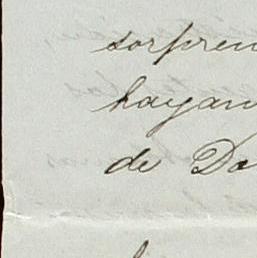 sorpren
hayan
de Do